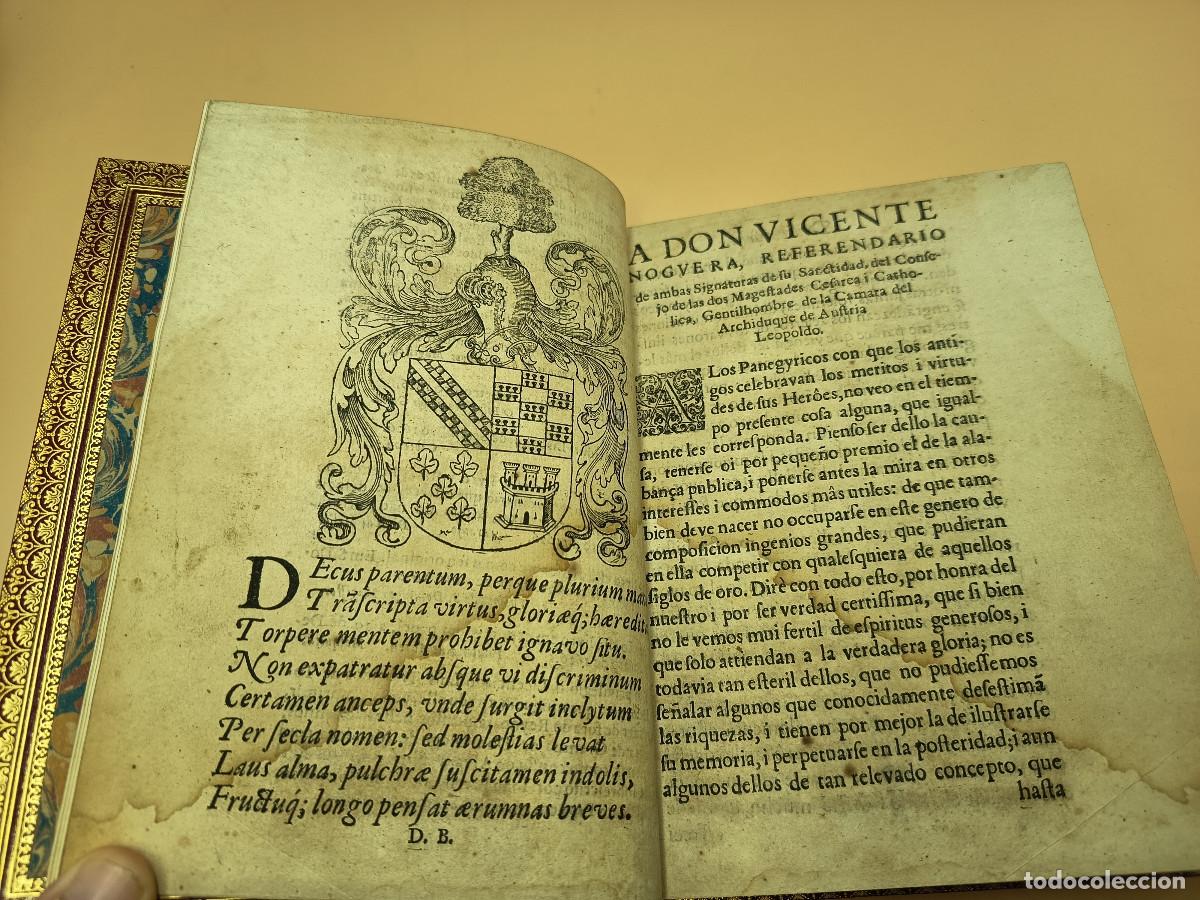 DEcus parentum, perque plurium
Trãscripta virtus, gloriæq; hæredit
Torpere mentem prohibet ignavo situ.
Non expatratur absque vi discriminum
Certamen anceps, vnde surgit inclytum
Per secla nomen: sed molestias levat
Laus alma, pulchræ suscitamen indolis,
Fructuq; longo pensat ærumnas breves.
D. B.
A DON VICENTE
NOGVERA, REFERENDARIO
de ambas Signaturas de su Sanctidad, del Conse-
jo de las dos Magestades Cesarea i Catho-
lica, Gentilhombre de la Camara del
Archiduque de Austria
Leopoldo.
A Los Panegyricos con que los anti-
gos celebravan los meritos i virtu-
des de sus Heròes, no veo en el tiem-
po presente cosa alguna, que igual-
mente les corresponda. Pienso ser dello la cau-
sa, tenerse oi por pequeño premio el de la ala-
bança publica, i ponerse antes la mira en otros
interesses i commodos màs utiles: de que tam-
bien deve nacer no occuparse en este genero de
composicion ingenios grandes, que pudieran
en ella competir con qualesquiera de aquellos
siglos de oro. Dirè con todo esto, por honra del
nuestro i por ser verdad certissima, que si bien
no le vemos mui fertil de espiritus generosos, i
que solo attiendan a la verdadera gloria; no es
todavia tan esteril dellos, que no pudiessemos
señalar algunos que conocidamente desestimã
las riquezas, i tienen por mejor la de ilustrarse
su memoria, i perpetuarse en la posteridad; i aun
algunos dellos de tan relevado concepto, que
hasta
todocoleccion